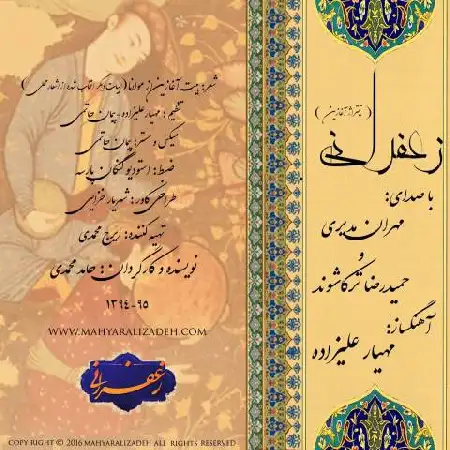 (تیتراژ آغازین)
زعفرانی
با صدای:
مهران مدیری
و
حمیدرضا ترکاشوند
آهنگساز:
مهیار علیزاده
شعر: بیت آغازین از مولانا (ابیات دیگر انتخاب شده از اشعار محلی)
تنظیم: مهیار علیزاده، پیمان حاتمی
میکس و مستر: پیمان حاتمی
ضبط: استودیو گلنگان پارسه
طراحی کاور: شهریار خزایی
تهیه کننده: ایرج محمدی
نویسنده و کارگردان: حامد محمدی
۱۳۹۴-۹۵
WWW.MAHYARALIZADEH.COM
زعفرانی
COPY RIGHT © 2016 MAHYARALIZADEH ALL RIGHTS RESERVED